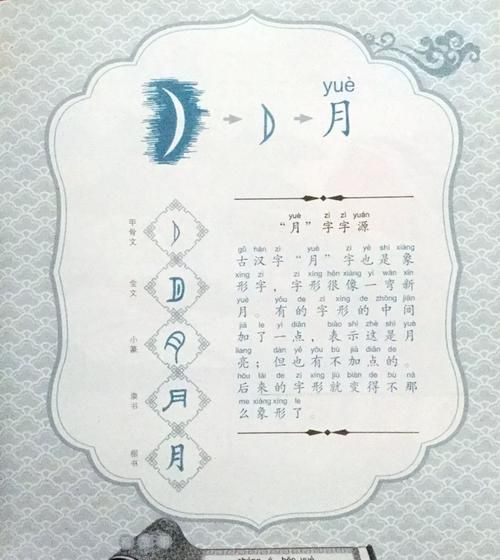 yuè
月
甲骨文
金文
小篆
隶书
楷书
yuè zì zì yuán
“月”字字源
gǔ hàn zì yuè zì yě shì xiàng
古汉字“月”字也是象
xíng zì zì xíng hěn xiàng yì wān xīn
形字，字形很像一弯新
yuè yǒu de zì xíng de zhōng jiān
月。有的字形的中间
jiā le yì diǎn biǎo shì zhè shì yuè
加了一点，表示这是月
liang dàn yě yǒu bù jiā diǎn de
亮；但也有不加点的。
hòu lái de zì xíng jiù biàn de bù nà
后来的字形就变得不那
me xiàng xíng le
么象形了。